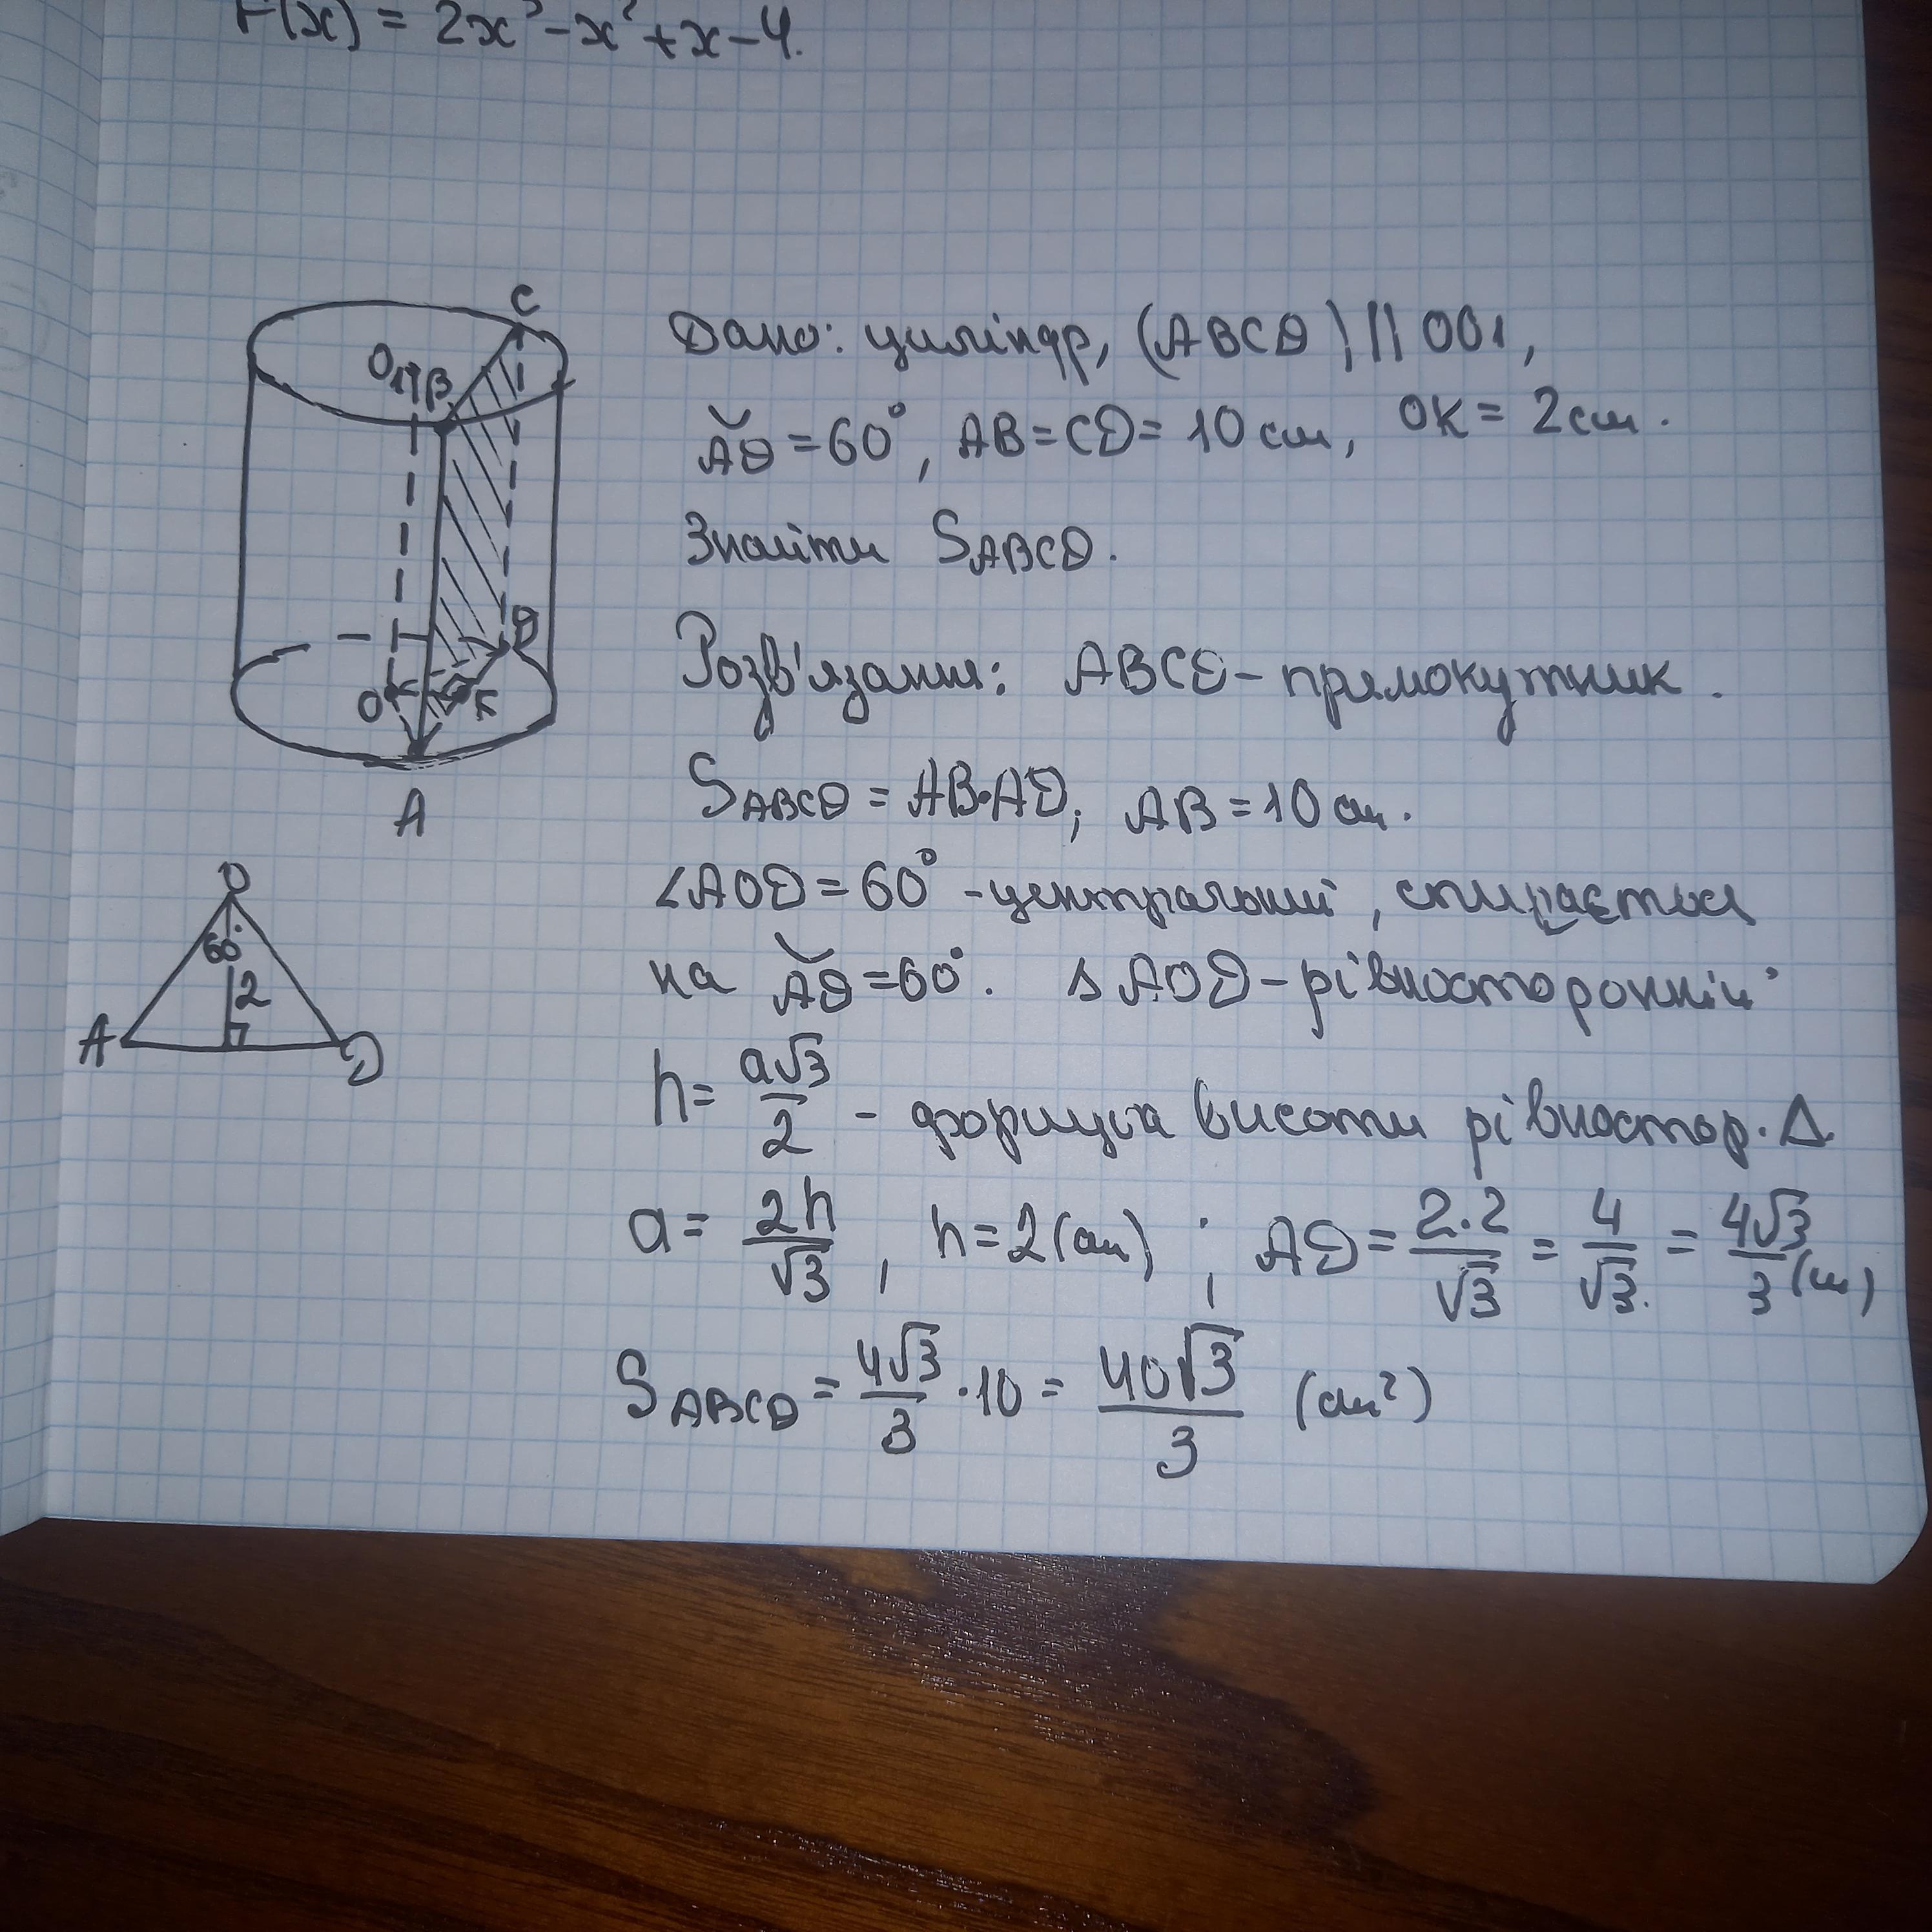 F(x) = 2x³ - x² + x - 4.
C
O₁ B
D
O K
A
Дано: циліндр, (ABCD) || OO₁,
ᵕAD = 60°, AB = CD = 10 см, OK = 2 см.
Знайти S_ABCD.
Розв'язання: ABCD - прямокутник.
S_ABCD = AB·AD, AB = 10 см.
∠AOD = 60° - центральний, спирається
на ᵕAD = 60°. Δ AOD - рівносторонній
O
60°
2
A D
h = a√3/2 - формула висоти рівностор. Δ.
a = 2h/√3, h = 2 (см) ; AD = 2·2/√3 = 4/√3 = 4√3/3 (см)
S_ABCD = 4√3/3 · 10 = 40√3/3 (см²)